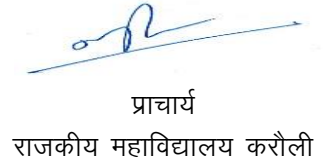 प्राचार्य
राजकीय महाविद्यालय करौली